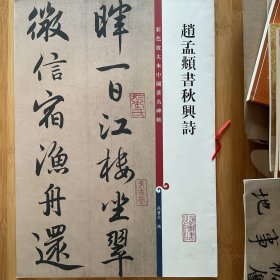 趙孟頫書秋興詩
彩色放大本中國著名碑帖
孫寶文 編
暉一日江樓坐翠
微信宿漁舟還
地事